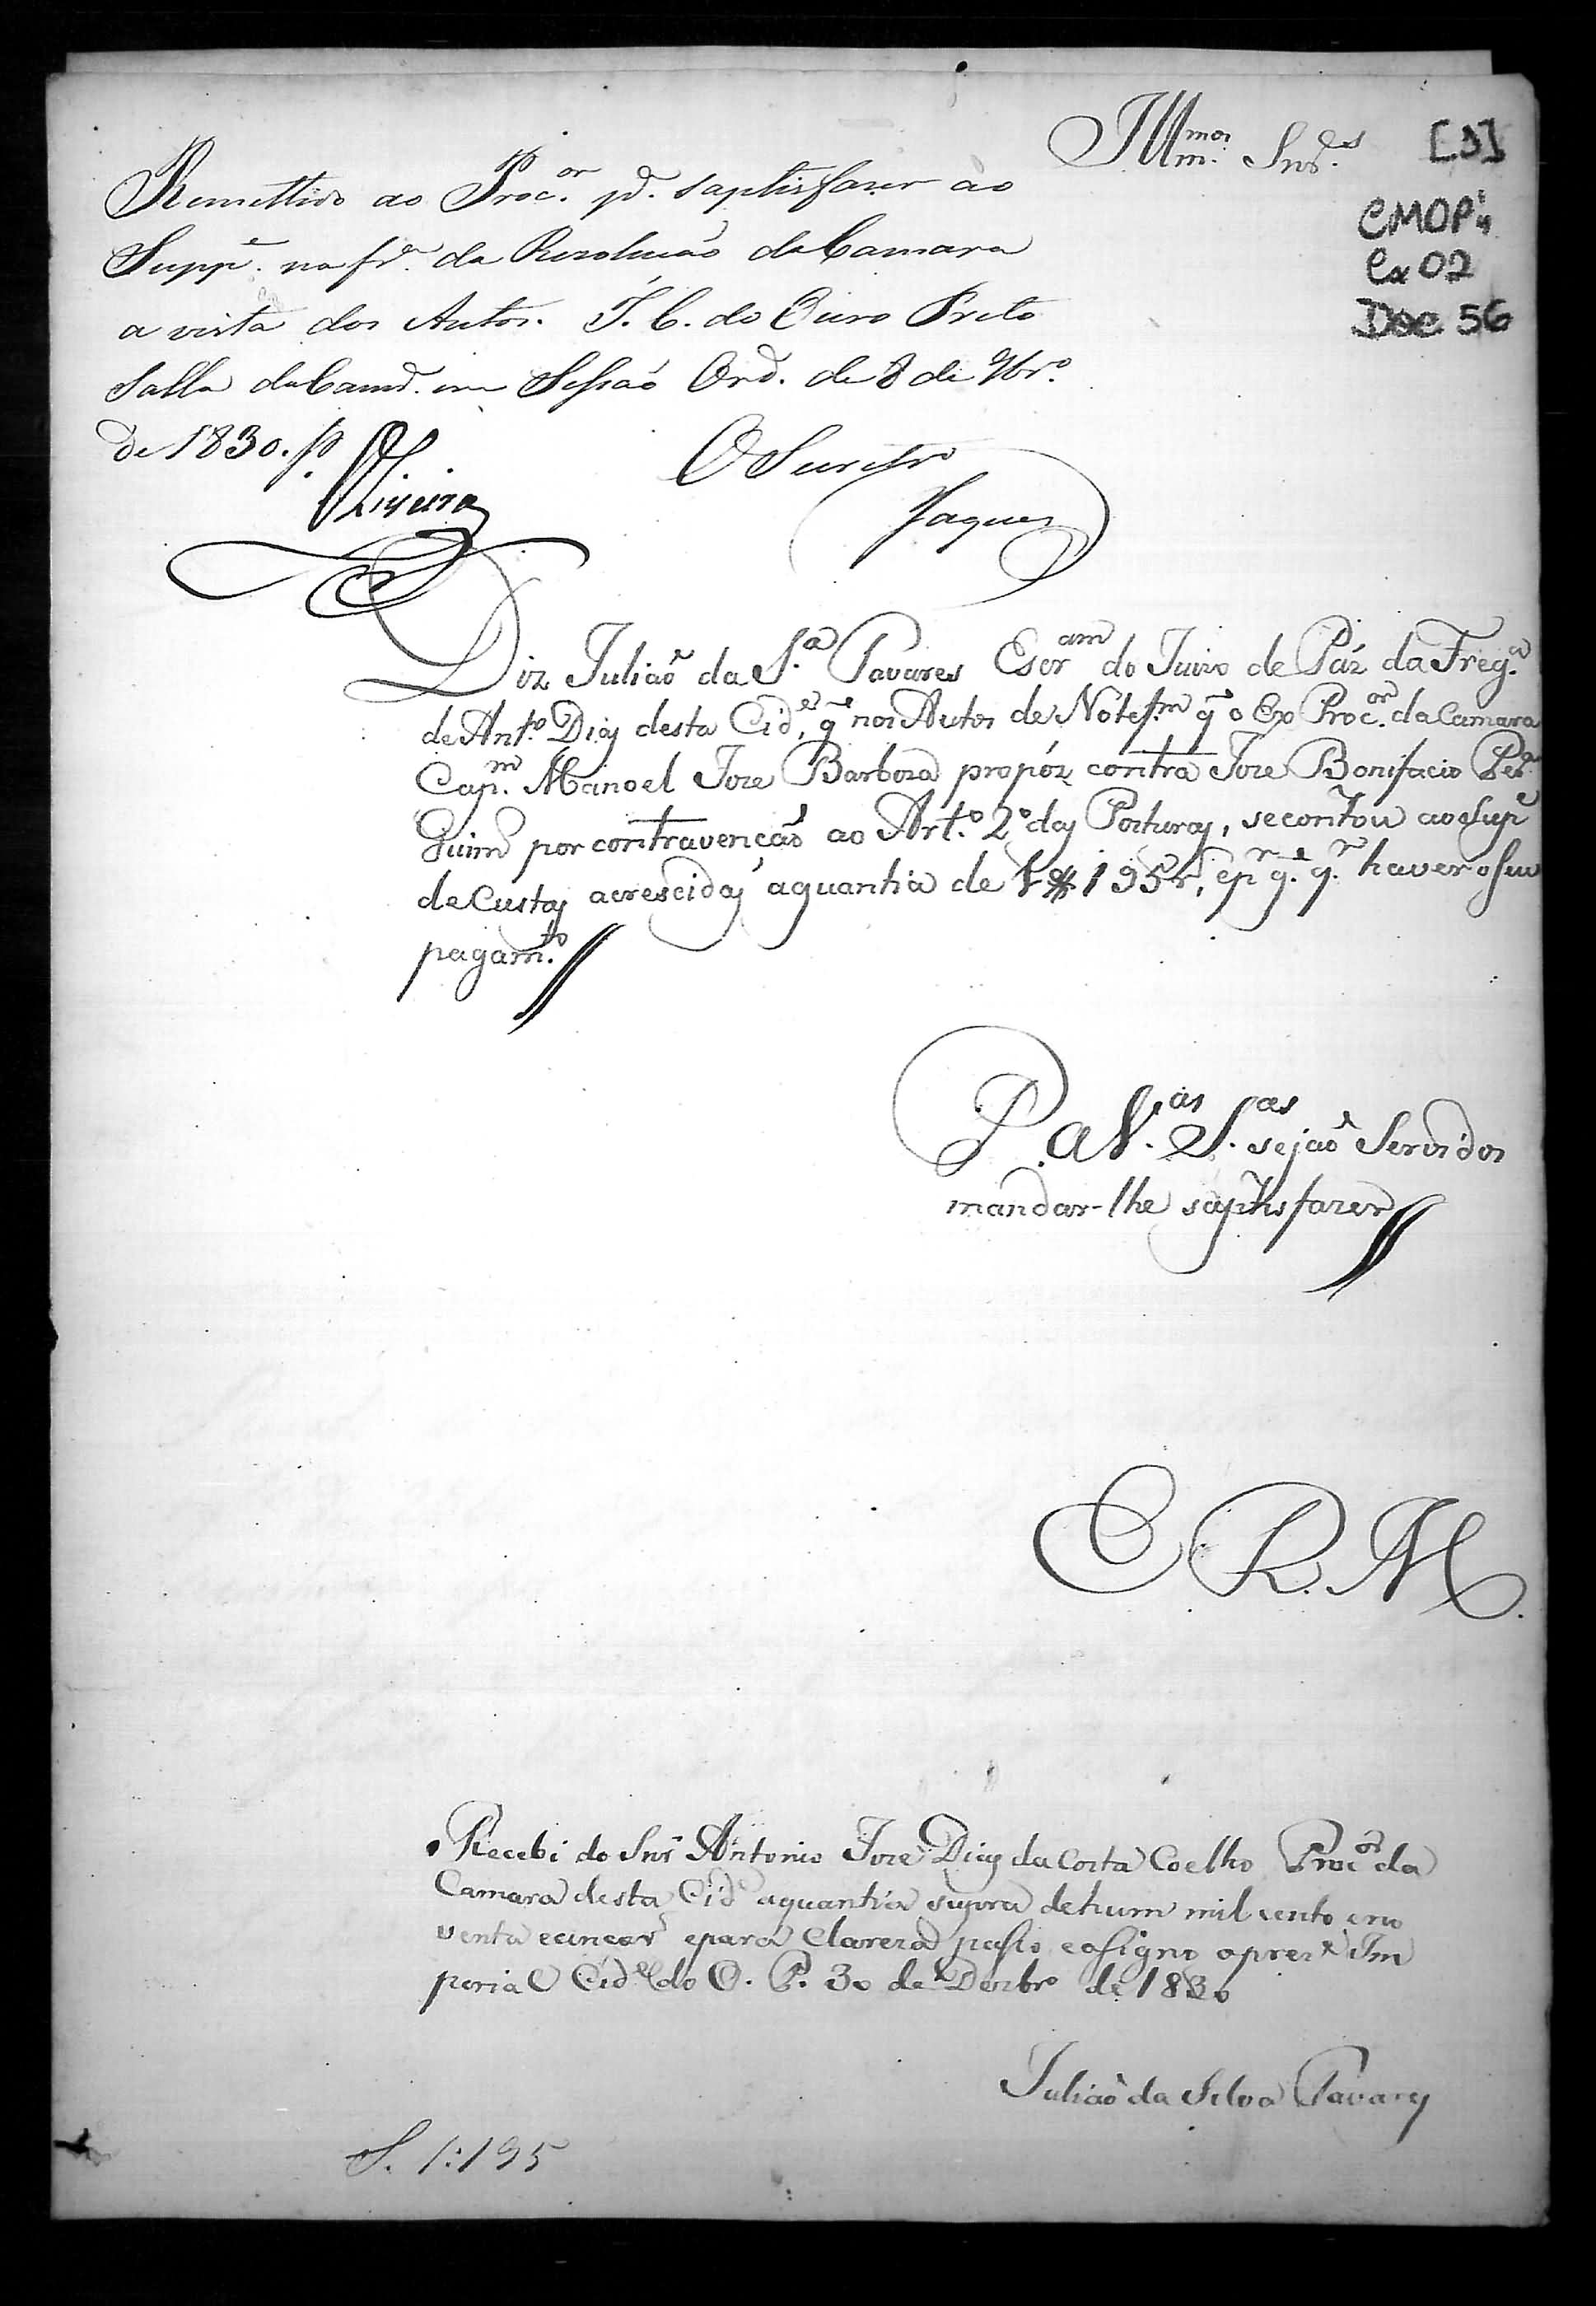 Ill.mos Snr.es
[1]
CMOP
Cx 02
Doc 56
Remettido ao Proc.or p.a saptisfazer ao
Supp.e na f.a da Rezolucaõ da Camara
a vista dos Autos. I. C. do Ouro Preto
Salla da Cam.a em Sessaõ Ord. de 8 de 9br.o
de 1830.
Oliveira
O Secretr.o
Jaques
Diz Juliaõ da S.a Tavares Escr.am do Juizo de Páz da Freg.a
de Ant.o Dias desta Cid.e, q̃ nos Autos de Notef.m q̃ o Ex Proc.or da Camara
Cap.m Manoel Joze Barboza propôz contra Joze Bonifacio
por contravençaõ ao Art.o 2.o das Posturas, se contou ao Sup.e
de Custas acrescidas aquantia de 1$195 r.s, e p.r q.e q.r haver o seu
pagam.to
P. a V.as S.as sejaõ Servidos
mandar-lhe saptisfazer
E. R. M.
Recebi do Snr Antonio Joze Dias da Costa Coelho Proc.or da
Camara desta Cid.e aquantia supra de hum mil cento eno
venta ecinco r.s epara Clareza passo eassigno o prez.e Im
perial Cid.e do O. P. 30 de Dezbr.o de 1830
Juliaõ da Silva Tavares
S. 1:195